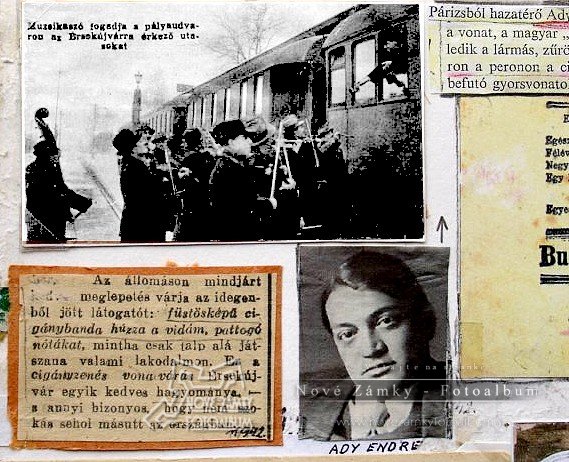 Muzsikaszó fogadja a pályaudva-
ron az Érsekújvárra érkező uta-
sokat
Párizsból hazatérő Ady
a vonat, a magyar „
ledik a lármás, zűrö
ron a peronon a ci
befutó gyorsvonato
Egész
Félév
Negy
Egy
Egye
Bu
Az állomáson mindjárt
meglepetés várja az idegen-
ből jött látogatót: füstösképű ci-
gánybanda húzza a vidám, pattogó
nótákat, mintha csak talp alá ját-
szana valami lakodalmon. Ez a
cigányzenés vonatvárás Érsekúj-
vár egyik kedves hagyománya, —
s annyi bizonyos, hogy nem szo-
kás sehol másutt az országban.
1942
Nové Zámky - Fotoalbum
ADY ENDRE